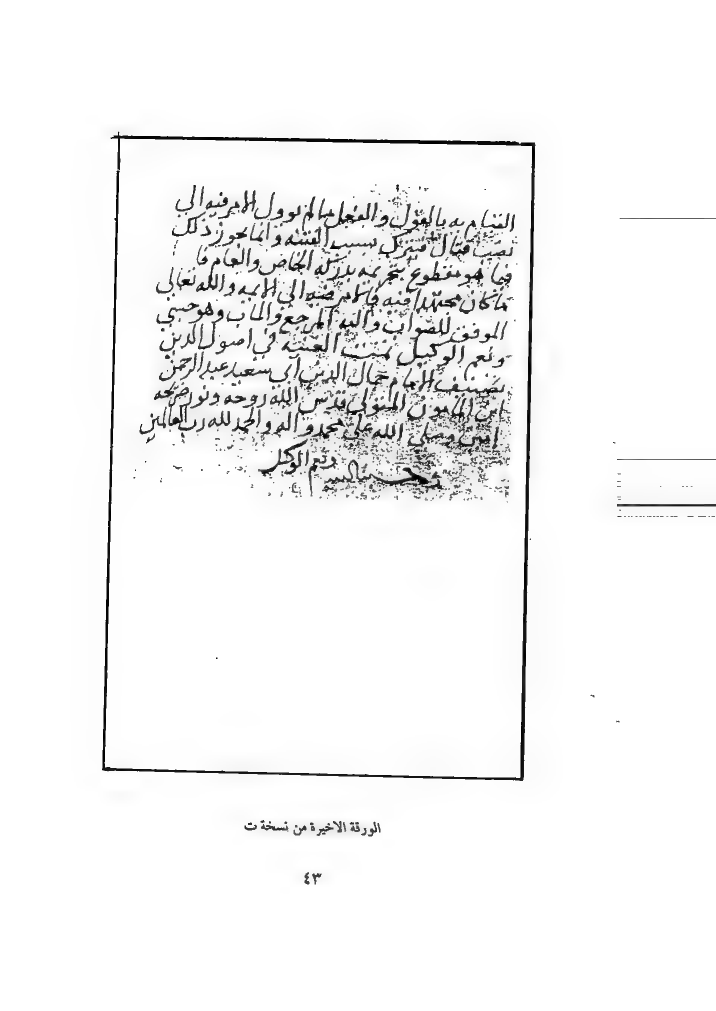 القيام به بالقول والفعل ما لم يوول الامر فيه الى
نصب قتال فيترك بسبب الفتنة وانما يجوز ذلك
فيما هو مقطوع بتحريمه يدركه الخاص والعام فا
ما كان مجتهدا فيه فالامر فيه الى الايمه والله تعالى
الموفق للصواب واليه المرجع والماب وهو حسبي
ونعم الوكيل تمت الغنيه في اصول الدين
تصنيف الامام جمال الدين ابي سعيد عبد الرحمن
ابن المامون المتولي قدس الله روحه ونور ضريحه
امين وصلى الله على محمد واله والحمد لله رب العالمين
ونعم الوكيل
الورقة الاخيرة من نسخة ت
٤٣